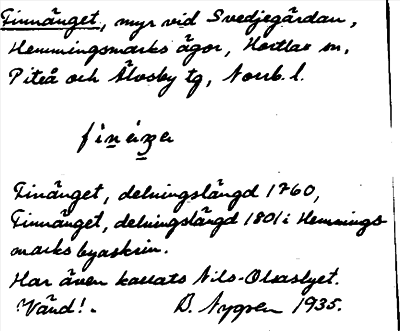 Finnänget, myr vid Svedjegårdan,
Hemmingsmarks ägor, Hortlax sn,
Piteå och Älvsby tg, Norrb. l.
Finänget, delningslängd 1760,
Finnänget, delningslängd 1801 i Hemmings-
marks byaskrin.
Har även kallats Nils-Olsaslyet.
Vänd! - B. Nygren 1935.